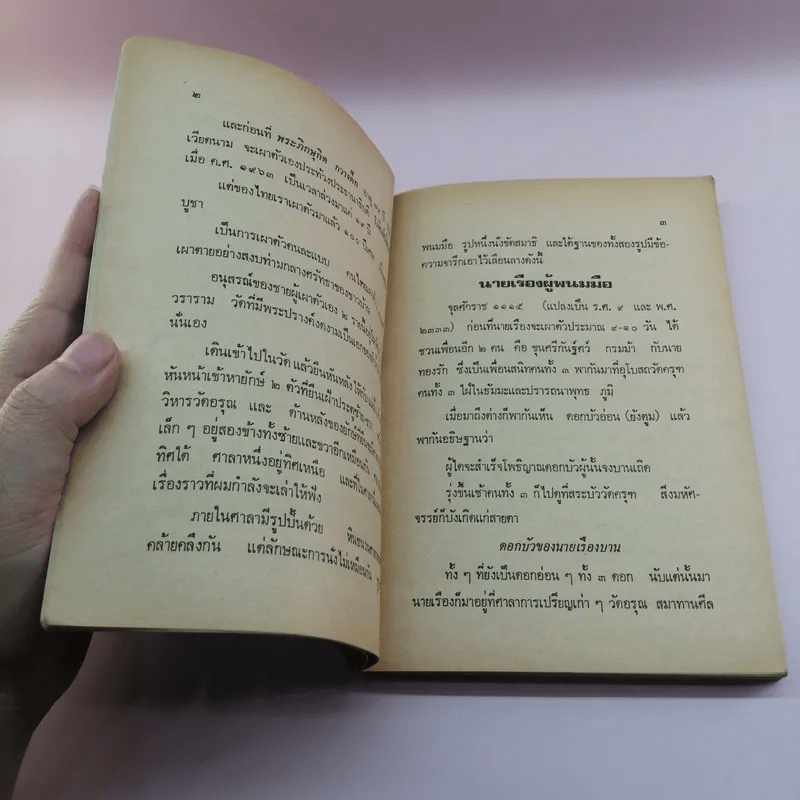 ๒
และก่อนที่ พระภิกษุกิต กวางดึ๊ก
เวียดนาม จะเผาตัวเองประท้วงประธานาธิบดี
เมื่อ ค.ศ. ๑๙๖๓ เป็นเวลาล่วงมาแค่ ๑๙ ปี
แต่ของไทยเราเผาตัวมาแล้ว ๑๐๐ ปีเศษ
บูชา
เป็นการเผาตัวคนละแบบ
เผาตายอย่างสงบท่ามกลางศรัทธาของชาวบ้าน
อนุสรณ์ของชายผู้เผาตัวเอง ๒ รายนี้อยู่
วราราม วัดที่มีพระปรางค์งดงามเป็นเอกของ
นั่นเอง
เดินเข้าไปในวัด แล้วยืนหันหลัง
หันหน้าเข้าหายักษ์ ๒ ตัวที่ยืนเฝ้าประตู
วิหารวัดอรุณ และ ด้านหลังของยักษ์
เล็ก ๆ อยู่สองข้างทั้งซ้ายและขวาอีกเหมือนกัน
ทิศใต้ ศาลาหนึ่งอยู่ทิศเหนือ และที่ในศาลา
เรื่องราวที่ผมกำลังจะเล่าให้ฟัง
ภายในศาลามีรูปปั้นด้วย
คล้ายคลึงกัน แต่ลักษณะการนั่งไม่เหมือนกัน
๓
พนมมือ รูปหนึ่งนั่งขัดสมาธิ และใต้ฐานของทั้งสองรูปมีข้อ-
ความจารึกเอาไว้เลือนลางดังนี้
นายเรืองผู้พนมมือ
จุลศักราช ๑๑๑๕ (แปลงเป็น ร.ศ. ๙ และ พ.ศ.
๒๓๓๓) ก่อนที่นายเรืองจะเผาตัวประมาณ ๙-๑๐ วัน ได้
ชวนเพื่อนอีก ๒ คน คือ ขุนศรีกัณฐ์ศว์ กรมม้า กับนาย
ทองรัก ซึ่งเป็นเพื่อนสนิทคนทั้ง ๓ พากันมาที่อุโบสถวัดครุฑ
คนทั้ง ๓ ใฝ่ในธัมมะและปรารถนาพุทธ ภูมิ
เมื่อมาถึงต่างก็พากันเห็น ดอกบัวอ่อน (ยังตูม) แล้ว
พากันอธิษฐานว่า
ผู้ใดจะสำเร็จโพธิญาณดอกบัวผู้นั้นจงบานเถิด
รุ่งขึ้นเช้าคนทั้ง ๓ ก็ไปดูที่สระบัววัดครุฑ สิ่งมหัศ-
จรรย์ก็บังเกิดแก่สายตา
ดอกบัวของนายเรืองบาน
ทั้ง ๆ ที่ยังเป็นดอกอ่อน ๆ ทั้ง ๓ ดอก นับแต่นั้นมา
นายเรืองก็มาอยู่ที่ศาลาการเปรียญเก่า ๆ วัดอรุณ สมาทานศีล